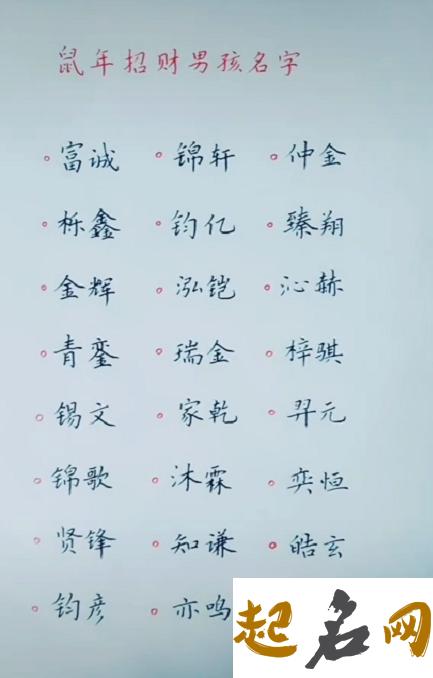 鼠年招财男孩名字
富诚 锦轩 仲金
栎鑫 钧亿 臻翔
金辉 泓铠 沁赫
青銮 瑞金 梓骐
锡文 家乾 羿元
锦歌 沐霖 奕恒
贤锋 知谦 皓玄
钧彦 亦鸣
起名网